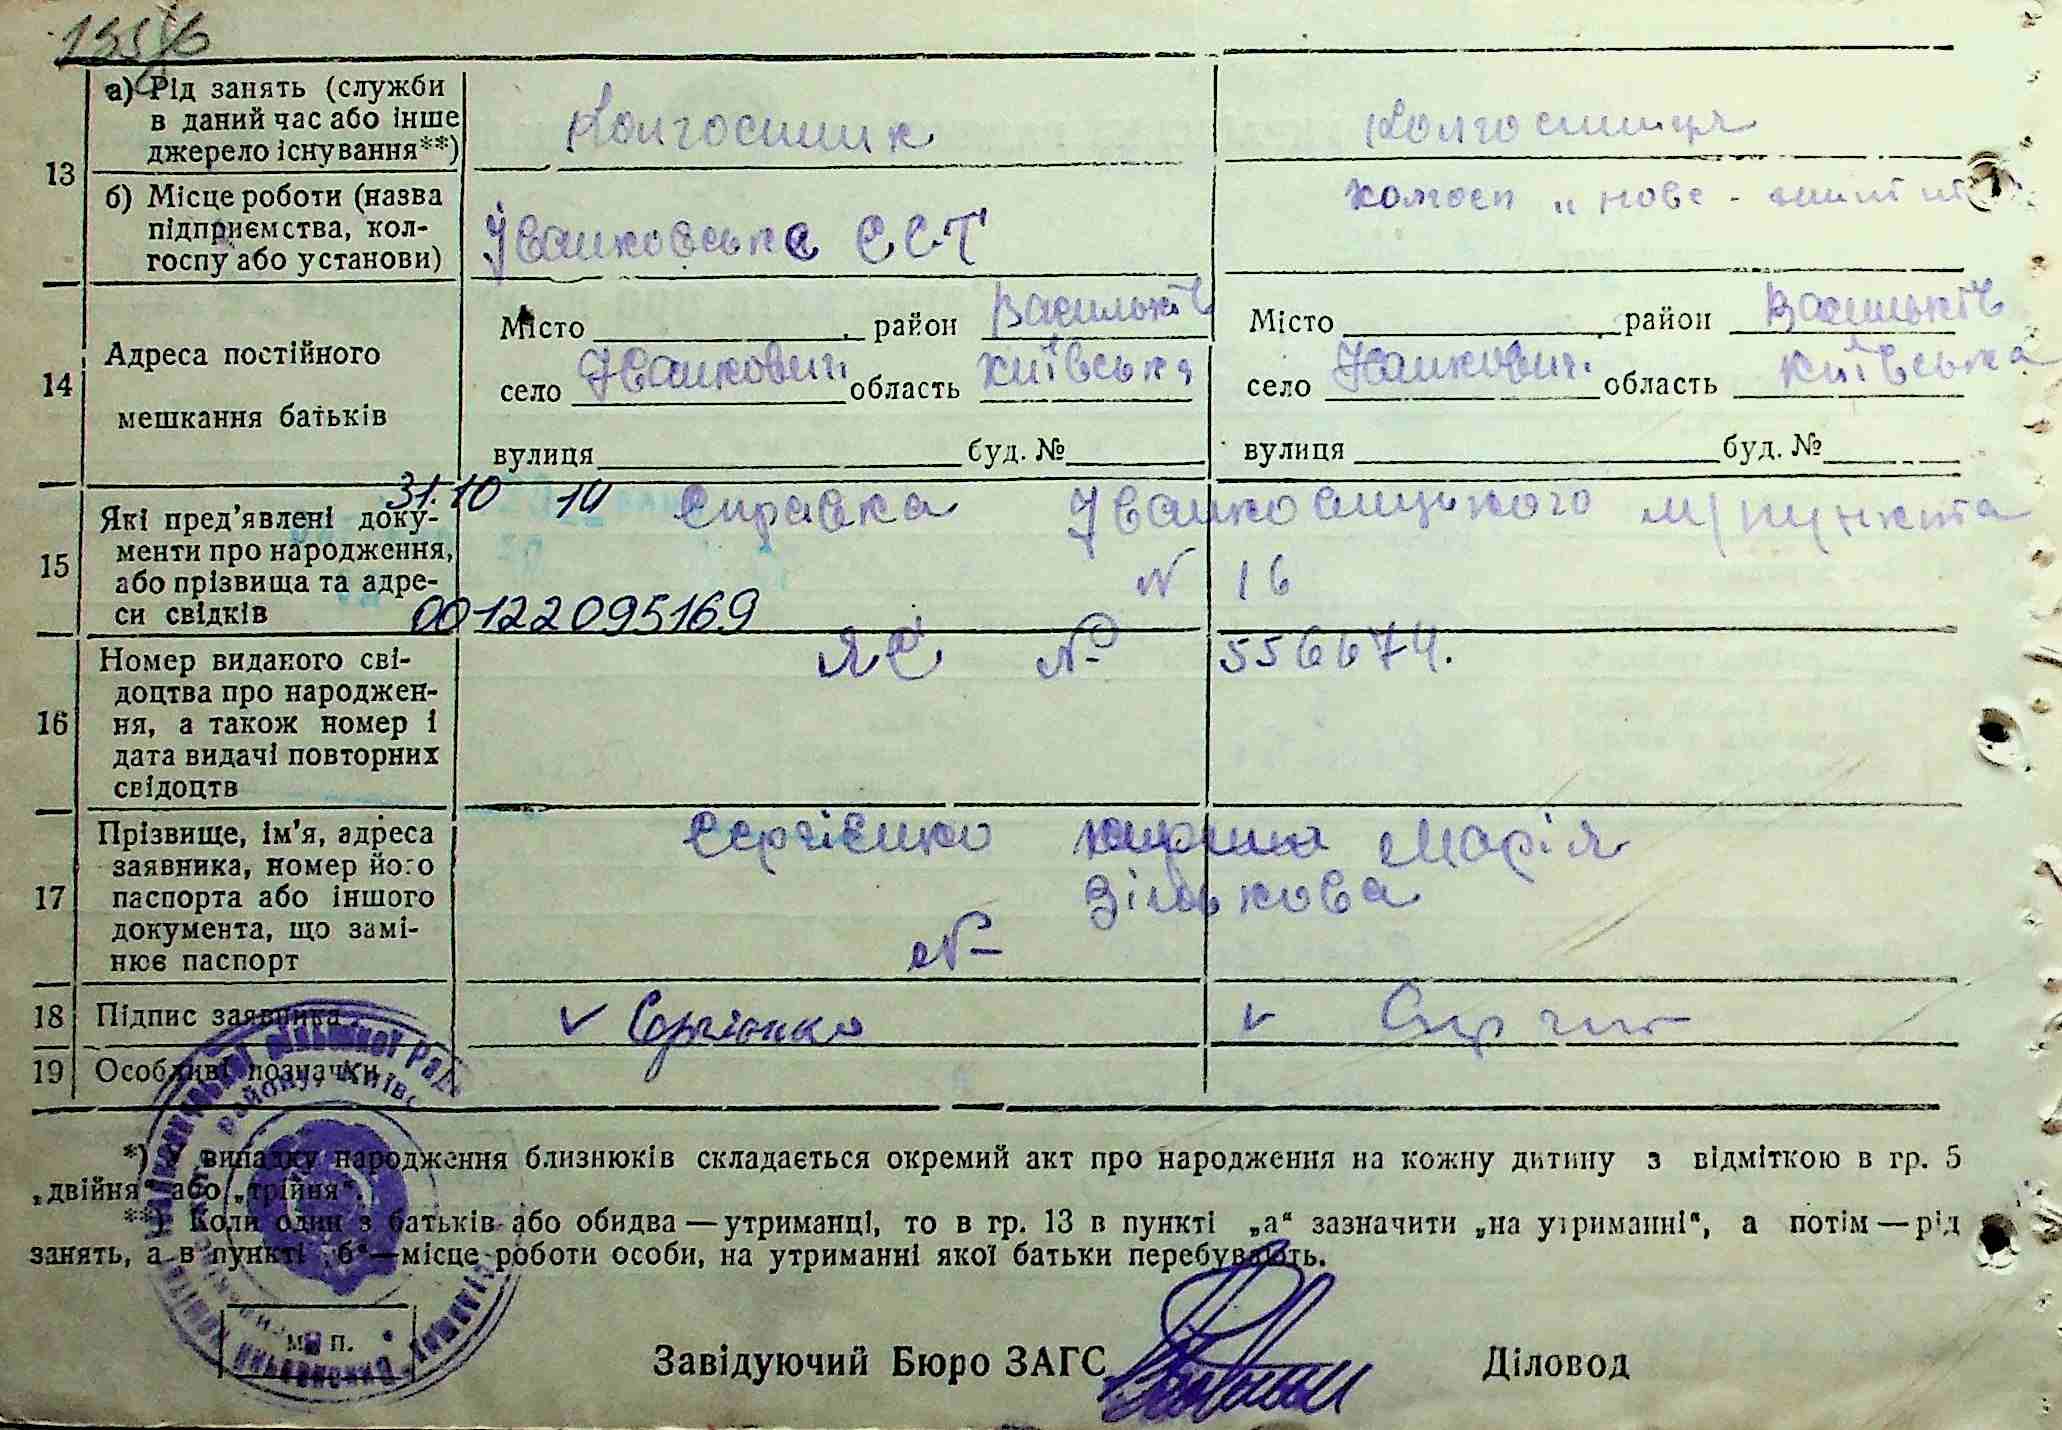 135/6
13
а) Рід занять (служби
в даний час або інше
джерело існування**)
Колгоспник
Колгоспниця
б) Місце роботи (назва
підприємства, кол-
госпу або установи)
Іванковське ССТ
колгосп „нове -
14
Адреса постійного
мешкання батьків
Місто район Васильків
село Іванковичі область Київська
вулиця буд. №
Місто район Васильків
село Іванковичі область Київська
вулиця буд. №
15
Які пред’явлені доку-
менти про народження,
або прізвища та адре-
си свідків
31.10 14 Справка Іванковицького м/пункта
№ 16
00122095169
16
Номер виданого сві-
доцтва про народжен-
ня, а також номер і
дата видачі повторних
свідоцтв
ЯЄ № 556674.
17
Прізвище, ім’я, адреса
заявника, номер його
паспорта або іншого
документа, що замі-
нює паспорт
Сергієнко Марія
Зінькова
№
18
Підпис заявника
Сергієнко
19
Особливі позначки
*) У випадку народження близнюків складається окремий акт про народження на кожну дитину з відміткою в гр. 5
„двійня“ або „трійня“.
**) Коли один з батьків або обидва — утриманці, то в гр. 13 в пункті „а“ зазначити „на утриманні“, а потім — рід
занять, а в пункті „б“ — місце роботи особи, на утриманні якої батьки перебувають.
М. П.
Завідуючий Бюро ЗАГС
Діловод